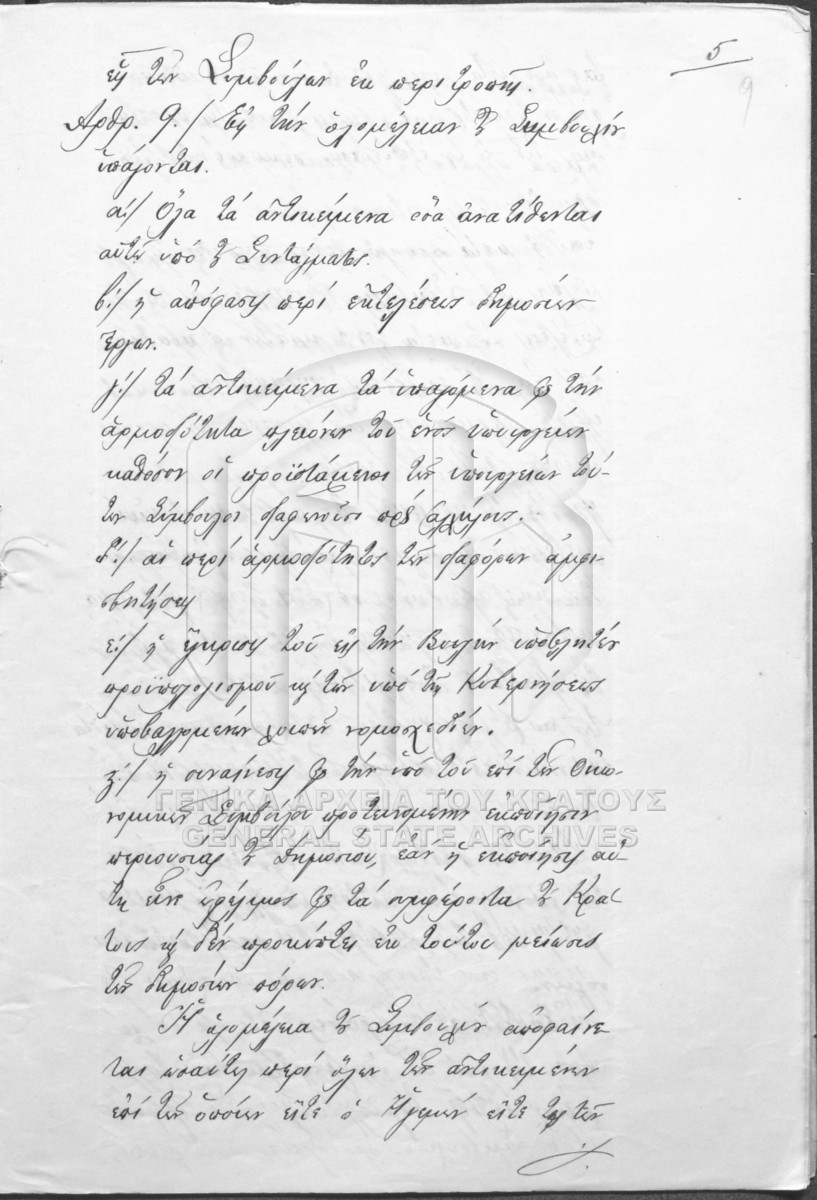 5
9
εἷς τῶν Συμβούλων ἐκ περιτροπῆς.
Ἄρθρ. 9./ Εἰς τὴν ὁλομέλειαν τοῦ Συμβουλίου
ὑπάγονται.
α:/ Ὅλα τὰ ἀντικείμενα ὅσα ἀνατίθενται
αὐτῇ ὑπὸ τοῦ Συντάγματος.
β:/ ἡ ἀπόφασις περὶ ἐκτελέσεως δημοσίων
ἔργων.
γ:/ τὰ ἀντικείμενα τὰ ὑπαγόμενα εἰς τὴν
ἁρμοδιότητα πλειόνων τοῦ ἑνὸς ὑπουργείων
καθόσον οἱ προϊστάμενοι τῶν ὑπουργείων τού-
των Σύμβουλοι διαφωνῶσι πρὸς ἀλλήλους.
δ:/ αἱ περὶ ἁρμοδιότητος τῶν διαφόρων ἀμφι-
σβητήσεις
ε:/ ἡ ἔγκρισις τοῦ εἰς τὴν Βουλὴν ὑποβλητέου
προϋπολογισμοῦ καὶ τῶν ὑπὸ τῆς Κυβερνήσεως
ὑποβαλλομένων λοιπῶν νομοσχεδίων.
ζ:/ ἡ συναίνεσις εἰς τὴν ὑπὸ τοῦ ἐπὶ τῶν Οἰκο-
νομικῶν Συμβούλου προτεινομένην ἐκποίησιν
περιουσίας τοῦ Δημοσίου, ἐὰν ἡ ἐκποίησις αὕ-
τη εἶνε ὠφέλιμος εἰς τὰ συμφέροντα τοῦ Κρά-
τους καὶ δὲν προκύπτει ἐκ τούτου μείωσις
τῶν δημοσίων πόρων.
Ἡ ὁλομέλεια τοῦ Συμβουλίου ἀποφαίνε
ται ὡσαύτως περὶ ὅλων τῶν ἀντικειμένων
ἐπὶ τῶν ὁποίων εἴτε ὁ Ἡγεμὼν εἴτε τις τῶν
ΓΕΝΙΚΑ ΑΡΧΕΙΑ ΤΟΥ ΚΡΑΤΟΥΣ
GENERAL STATE ARCHIVES